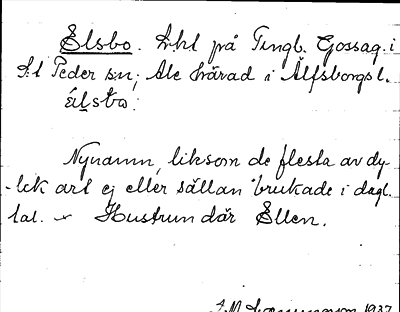 Elsbo. Lhl på Tingb. Gossag. i
St Peder sn; Ale härad i Älfsborgs l.
élsbo:
Nynamn, liksom de flesta av dy-
-lik art ej eller sällan brukade i dagl.
tal. - Hustrun där Ellen.
1937